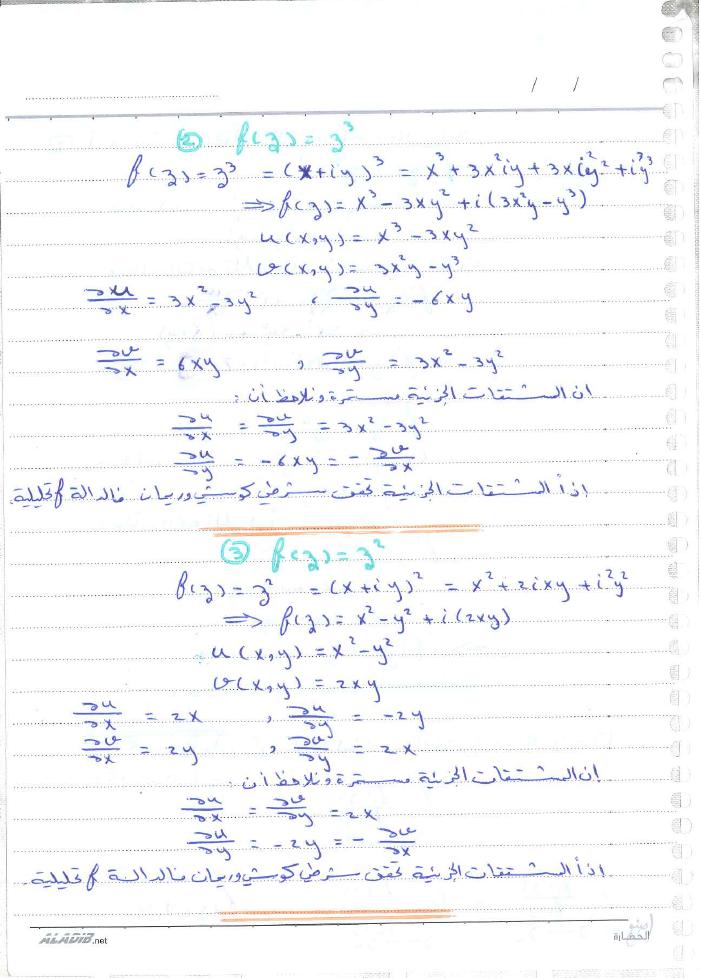 / /
② f(z) = z³
f(z) = z³ = (x+iy)³ = x³ + 3x²iy + 3xi²y² + i³y³
⇒ f(z) = x³ - 3xy² + i(3x²y - y³)
u(x,y) = x³ - 3xy²
v(x,y) = 3x²y - y³
∂u/∂x = 3x² - 3y² ، ∂u/∂y = -6xy
∂v/∂x = 6xy , ∂v/∂y = 3x² - 3y²
ان المشتقات الجزئية مستمرة ونلاحظ أن :
∂u/∂x = ∂v/∂y = 3x² - 3y²
∂u/∂y = -6xy = - ∂v/∂x
اذاً المشتقات الجزئية تحقق شرطي كوشي وريمان فالدالة f تحليلية.
③ f(z) = z²
f(z) = z² = (x+iy)² = x² + 2ixy + i²y²
⇒ f(z) = x² - y² + i(2xy)
u(x,y) = x² - y²
v(x,y) = 2xy
∂u/∂x = 2x , ∂u/∂y = -2y
∂v/∂x = 2y , ∂v/∂y = 2x
إن المشتقات الجزئية مستمرة ونلاحظ أن :
∂u/∂x = ∂v/∂y = 2x
∂u/∂y = -2y = - ∂v/∂x
اذاً المشتقات الجزئية تحقق شرطي كوشي وريمان فالدالة f تحليلية.
ALADIB.net
الحضارة